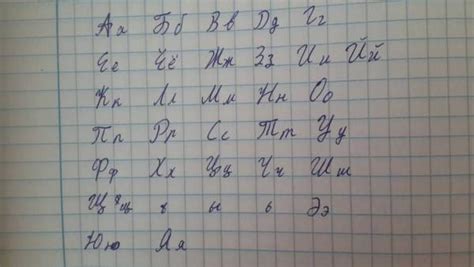 Аа Бб Вв Дд Гг
Ее Ёё Жж Зз Ии Йй
Кк Лл Мм Нн Оо
Пп Рр Сс Тт Уу
Фф Хх Цц Чч Шш
Щщ ъ ы ь Ээ
Юю Яя